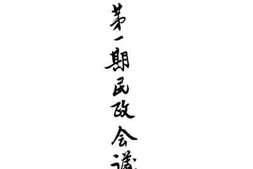 第一期民政会议